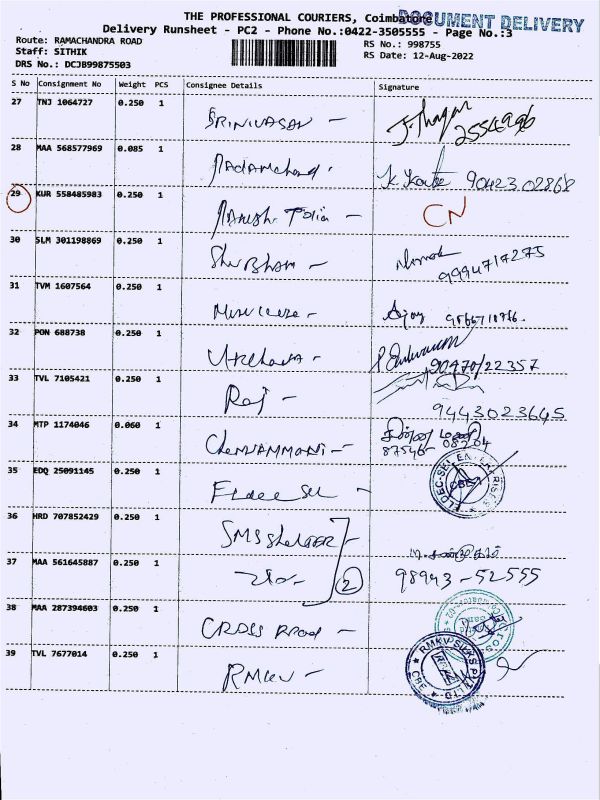 THE PROFESSIONAL COURIERS, Coimbatore
DOCUMENT DELIVERY
Delivery Runsheet - PC2 - Phone No.:0422-3505555 - Page No.:3
Route: RAMACHANDRA ROAD
RS No.: 998755
Staff: SITHIK
RS Date: 12-Aug-2022
DRS No.: DCJB99875503
S No Consignment No Weight PCS Consignee Details Signature
27 TNJ 1064727 0.250 1
SRINIVASAN -
28 MAA 568577969 0.085 1
90423 02868
29 KUR 558485983 0.250 1
CN
30 SLM 301198869 0.250 1
Shubham -
9994717275
31 TVM 1607564 0.250 1
Ajay
32 PON 688738 0.250 1
90470/22357
33 TVL 7105421 0.250 1
Raj -
9443023645
34 MTP 1174046 0.060 1
சின்ன மணி
87546- 08204
35 EDQ 25091145 0.250 1
36 HRD 707852429 0.250 1
SMS Shelter -
37 MAA 561645887 0.250 1
2
98943-52555
38 MAA 287394603 0.250 1
CROSS Road -
39 TVL 7677014 0.250 1
RMKV -
RMKV SILKS P LTD CBE